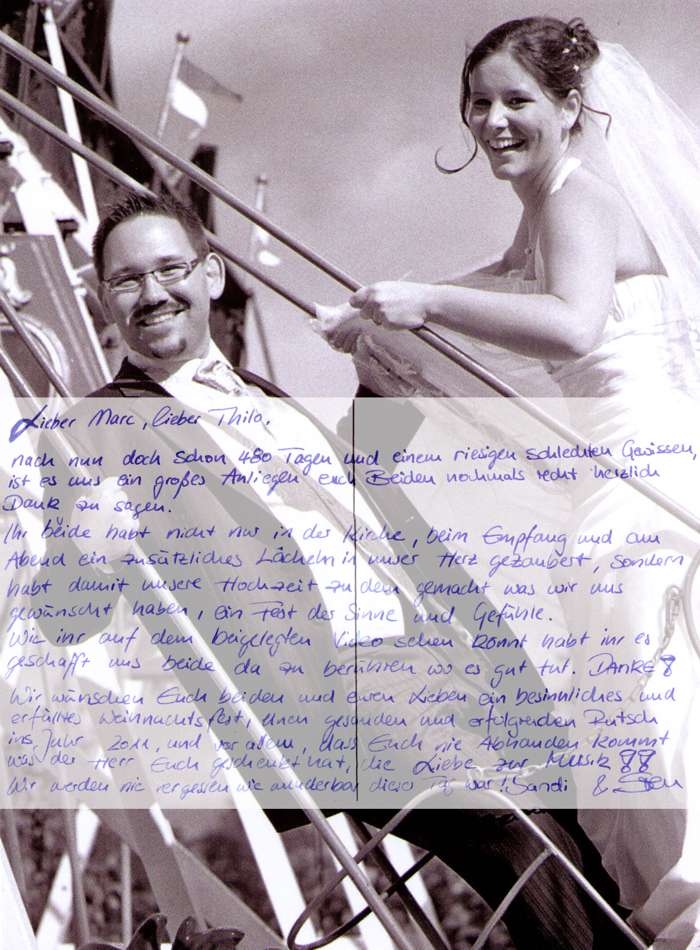 Lieber Marc, lieber Thilo,
nach nun doch schon 480 Tagen und einem riesigen schlechten Gewissen,
ist es uns ein großes Anliegen euch Beiden nochmals recht herzlich
Dank zu sagen.
Ihr beide habt nicht nur in der Kirche, beim Empfang und am
Abend ein zusätzliches Lächeln in unser Herz gezaubert, sondern
habt damit unsere Hochzeit zu dem gemacht was wir uns
gewünscht haben, ein Fest der Sinne und Gefühle.
Wie ihr auf dem beigelegten Video sehen könnt habt ihr es
geschafft uns beide da zu berühren wo es gut tut. DANKE!
Wir wünschen Euch beiden und euren Lieben ein besinnliches und
erfülltes Weihnachtsfest, einen gesunden und erfolgreichen Rutsch
ins Jahr 2011, und vor allem, dass Euch nie Abhanden kommt
was der Herr Euch geschenkt hat, die Liebe zur Musik!!
Wir werden nie vergessen wie wunderbar dieser Tag war! Sandi &